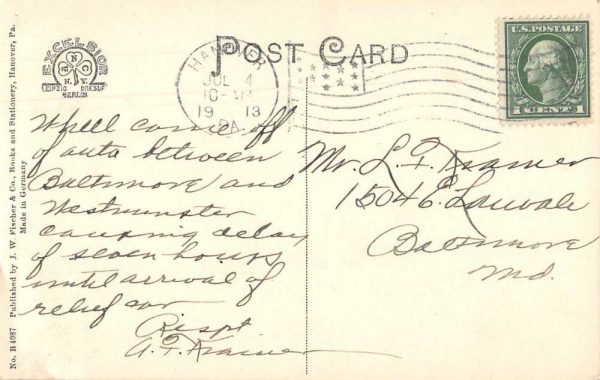 POST CARD
EXCELSIOR
N
A
B
N.Y.
LEIPZIG DRESDEN
BERLIN
HANOVER
JUL 4
10-AM
1913
PA.
U.S. POSTAGE
1 CENT 1
No. B 4087 Published by J. W. Fischer & Co., Books and Stationery, Hanover, Pa.
Made in Germany
Wheel came off
of auto between
Baltimore and
Westminster
causing delay
of seven hours
until arrival of
relief car
Respt
A. F. Kramer
Mr. L. F. Kramer
1504 E. Lanvale
Baltimore
Md.